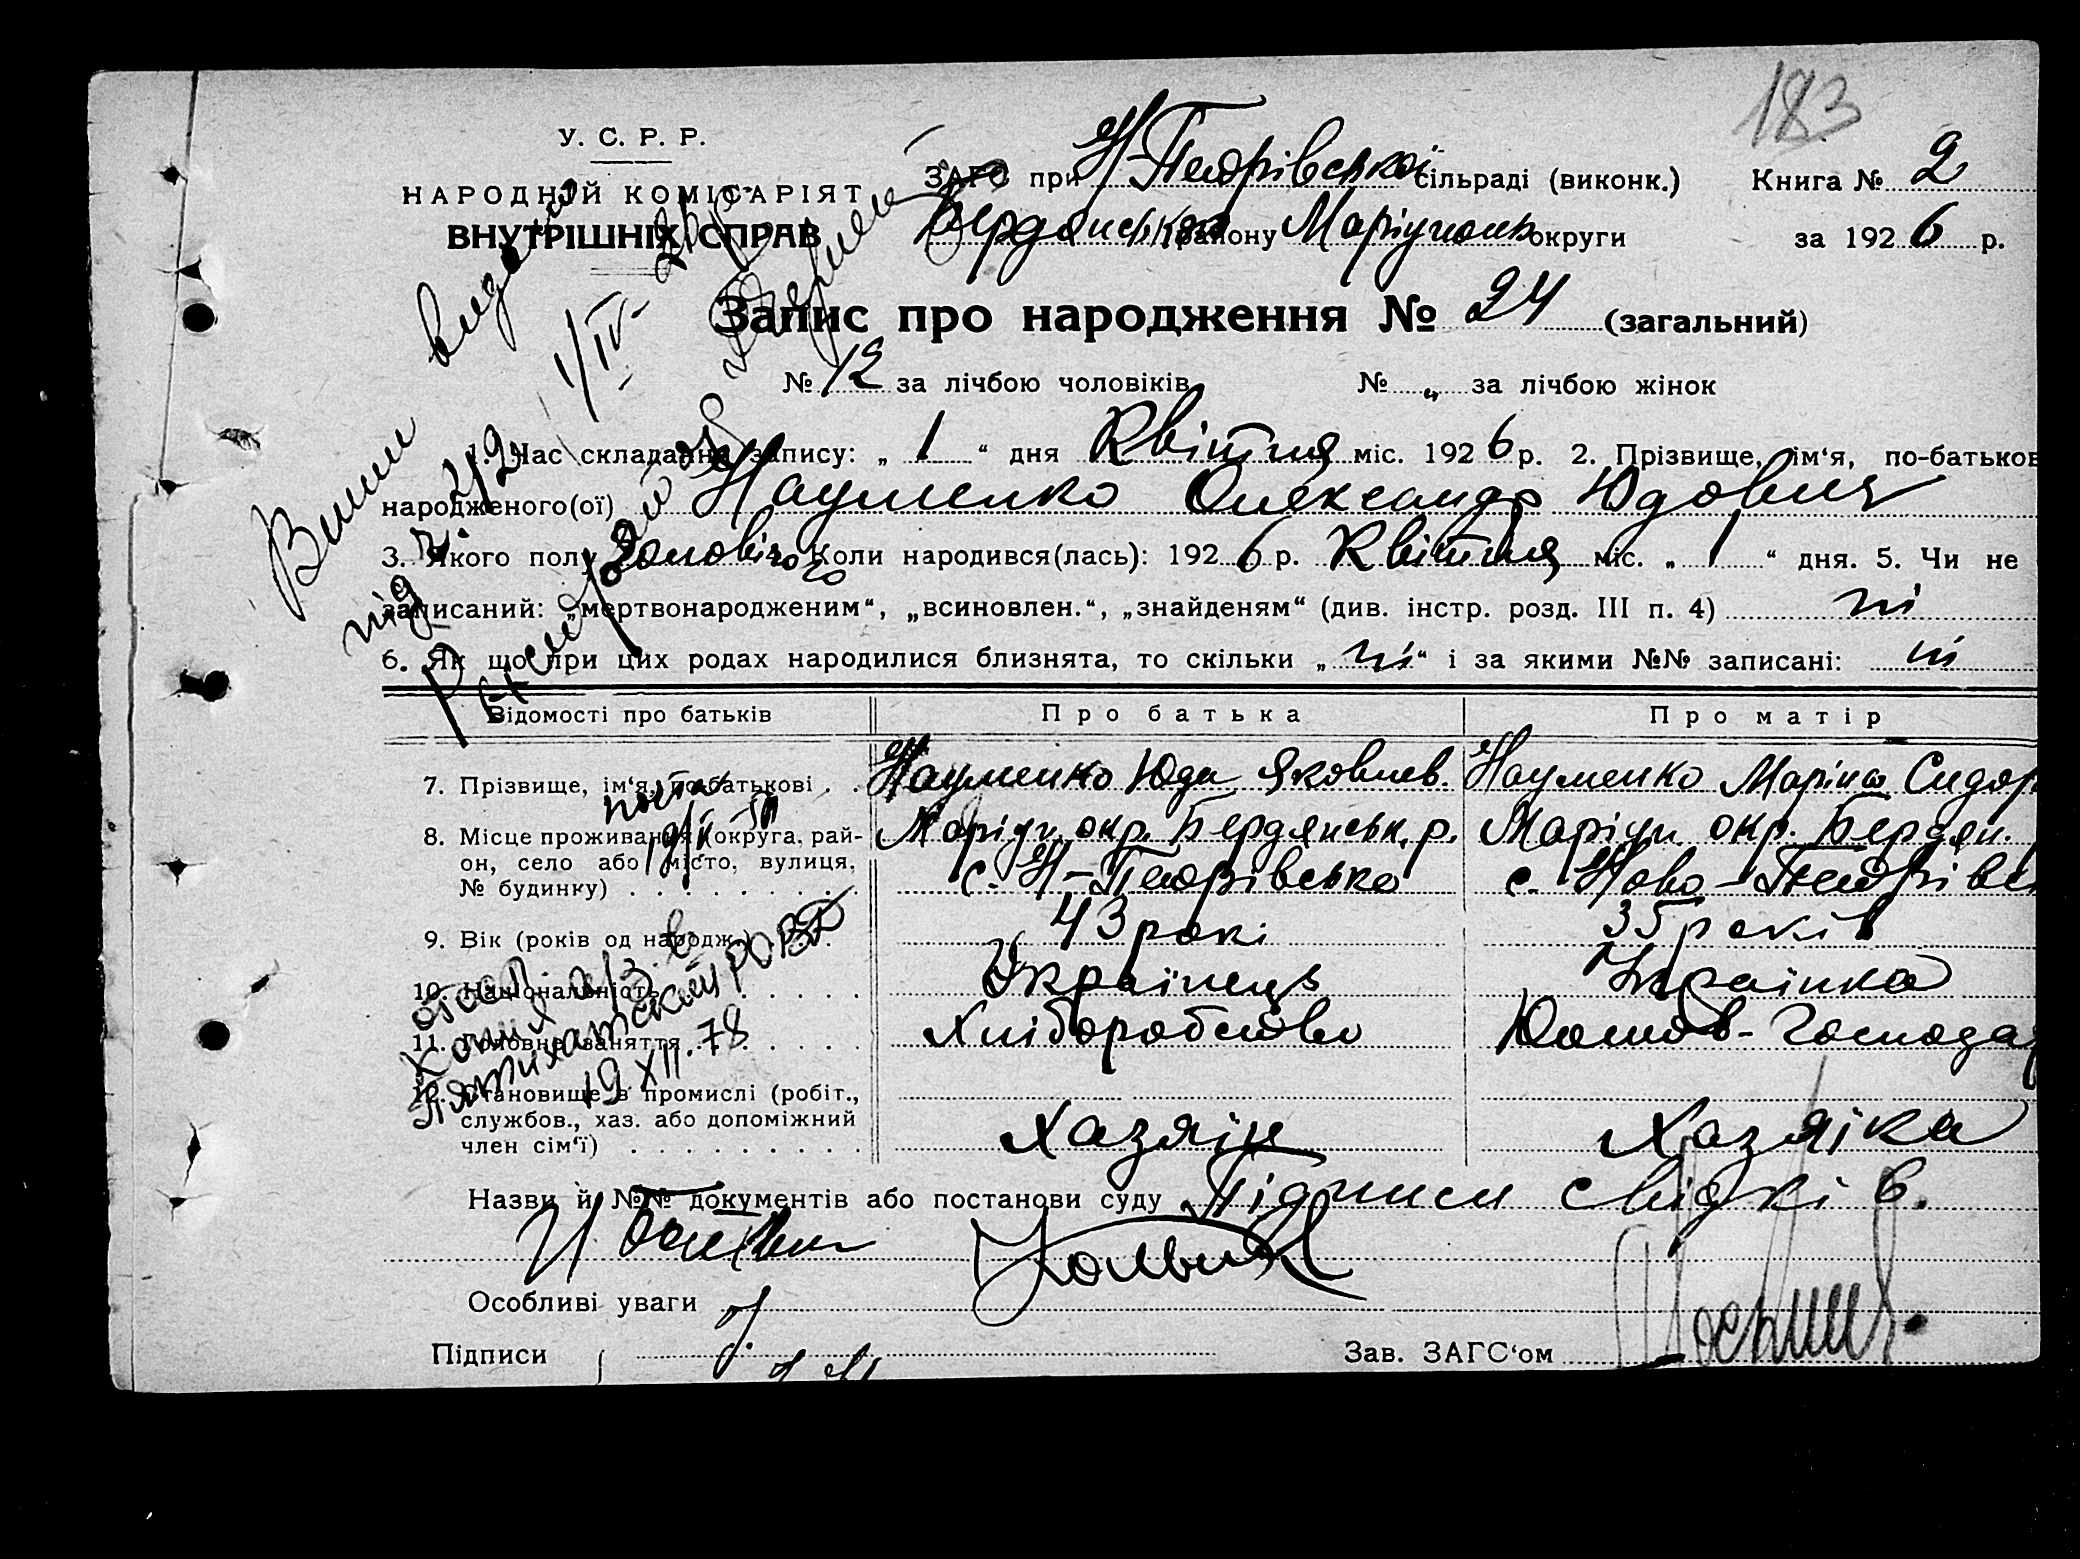 183
У. С. Р. Р.
НАРОДНІЙ КОМІСАРІЯТ
ВНУТРІШНІХ СПРАВ
ЗАГС при Н-Петрівській сільраді (виконк.) Книга № 2
Бердянського району Маріупольс округи за 1926 р.
Запис про народження № 24 (загальний)
№ 12 за лічбою чоловіків № „ за лічбою жінок
1. Час складання запису: „ 1 “ дня Квітня міс. 1926 р. 2. Прізвище, ім‘я, по-батьков
народженого(ої) Науменко Олександр Юдович
3. Якого полу Чоловічого 4. Коли народився(лась): 1926 р. Квітня міс. „ 1 “ дня. 5. Чи не
записаний: „мертвонародженим“, „всиновлен.“, „знайденям“ (див. інстр. розд. III п. 4) ні
6. Як що при цих родах народилися близнята, то скільки „ ні “ і за якими №№ записані: ні
Відомості про батьків Про батька Про матір
7. Прізвище, ім‘я, по-батькові . . Науменко Юда Яковлев. Науменко Маріна Сидор
8. Місце проживання (округа, рай-
он, село або місто, вулиця,
№ будинку)
Маріуп. окр. Бердянськ. р. Маріуп. окр. Бердян.
с. Н-Петрівська с. Ново-Петрівс
9. Вік (років од народж.) 43 рокі 35 років
10. Національність Українець Українка
11. Головне заняття Хліборобство Домов-Господар
12. Становище в промислі (робіт.,
службов., хаз. або допоміжний
член сім‘ї)
Хазяїн Хазяіка
Назви й №№ документів або постанови суду Підписи свідкі в.
Особливі уваги
Підписи Зав. ЗАГС‘ом
Випис видана
під ч. 2/2 1/IV-26 р.
19/II-51
копия а/з в
Пятихатский РОВД
19 XII.78